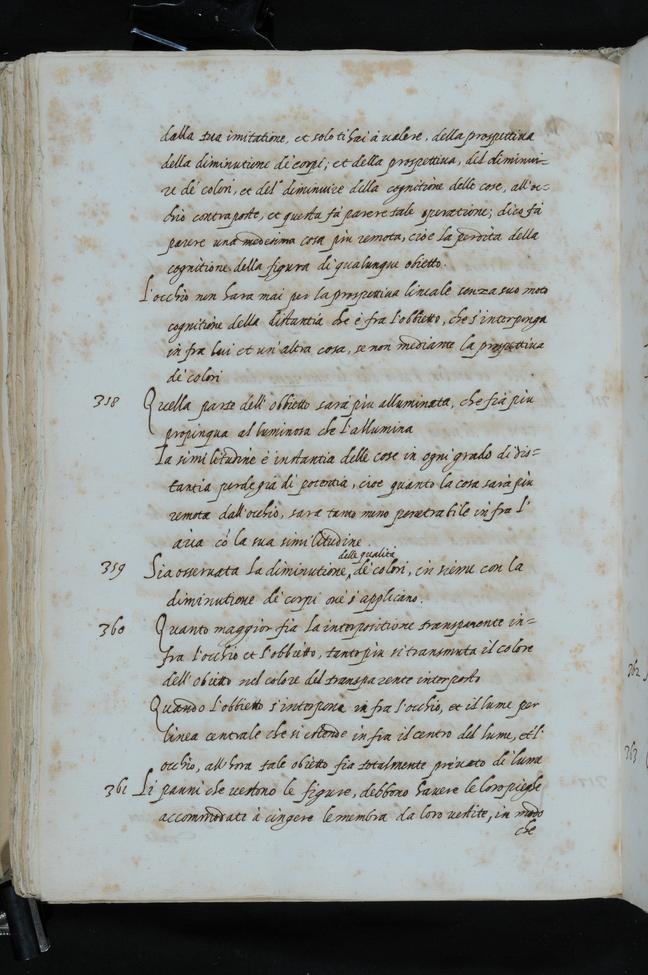 dalla tua imitatione, et solo ti hai à valere, della prospettiva
della diminutione de corpi; et della prospettiva, del diminui-
re de colori, et del diminuire della cognitione delle cose, all'oc-
chio contraposte, et questa fà parere tale operatione; dico fà
parere una medesima cosa più remota, cioè la perdita della
cognitione della figura di qualunque obietto.
L'occhio non hara mai per la prospettiva lineale senza suo moto
cognitione della distantia che è fra l'obbietto, che s'interponga
in fra lui et un'altra cosa, se non mediante la prospettiva
de colori
318 Quella parte dell'obbietto sarà più alluminata, che fia più
propinqua al luminoso che l'allumina
La similitudine è instantia delle cose in ogni grado di dis=
tantia perde già di potentia, cioè quanto la cosa sarà più
remota dall'occhio, sara tanto meno penetrabile in fra l'
aria cō la sua similitudine.
delle qualità
359 Sia osservata la diminutione, de colori, insieme con la
diminutione de corpi ove s'applicano.
360 Quanto maggior fia la interpositione transparente in=
fra l'occhio et l'obbietto, tanto più si transmuta il colore
dell'obietto nel colore del transparente interposto
Quando l'obbietto s'interpone in fra l'occhio, et il lume per
linea centrale che si estende in fra il centro del lume, et l'
occhio, all'hora tale obietto fia totalmente privato di lume
361 Li panni che vestono le figure, debbono havere le loro pieghe
accommodati à cingere le membra da loro vestite, in modo
che
362
363